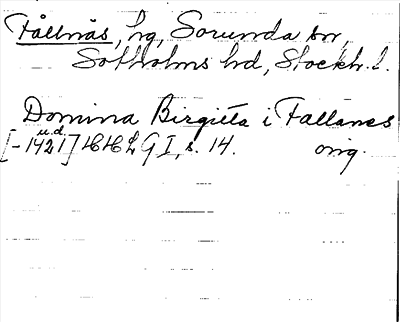 Fållnäs, hg, Sorunda sn,
Sotholms hd, Stockh. l.
Domina Birgitta i Fallanes
u.d.
[-1421] HH L G I, s. 14. orig.